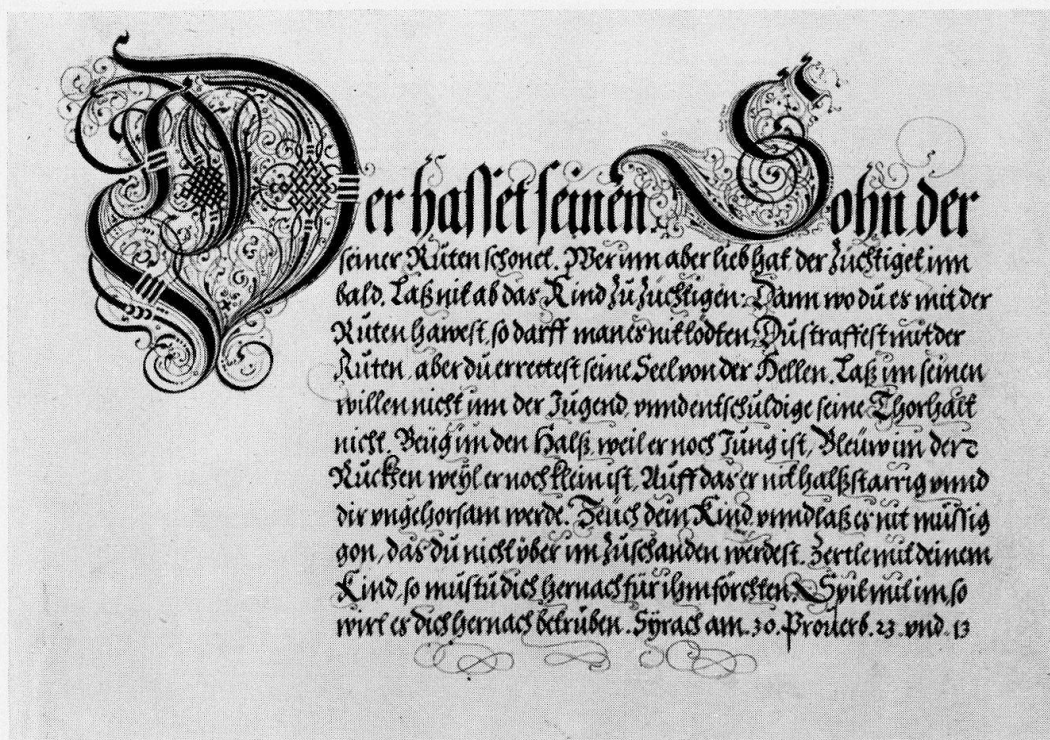 Der hasset seinen Sohn der
seiner Rüten schonet. Wer inn aber lieb hat, der züchtiget inn
bald. Laß nit ab das Kind zu züchtigen: Dann wo du es mit der
Rüten hawest, so darff man es nit tödten, Du straffest mit der
Rüten, aber du errettest seine Seel von der Hellen. Laß im seinen
willen nicht inn der Jugend, vnnd entschuldige seine Thorhait
nicht. Beüg im den Halß, weil er noch Jung ist, Bleüw im der
Rucken weyl er noch klein ist, Auff das er nit halßstarrig vnnd
dir vngehorsam werde. Zeüch dein Kind, vnnd laß es nit müssig
gon, das du nicht vber im zuschanden werdest. Zertle mit deinem
Kind, so mustu dich hernach für ihm förchten. Spil mit im, so
wirt es dich hernach betrüben. Syrach am. 30. Prouerb. 23. vnd. 13